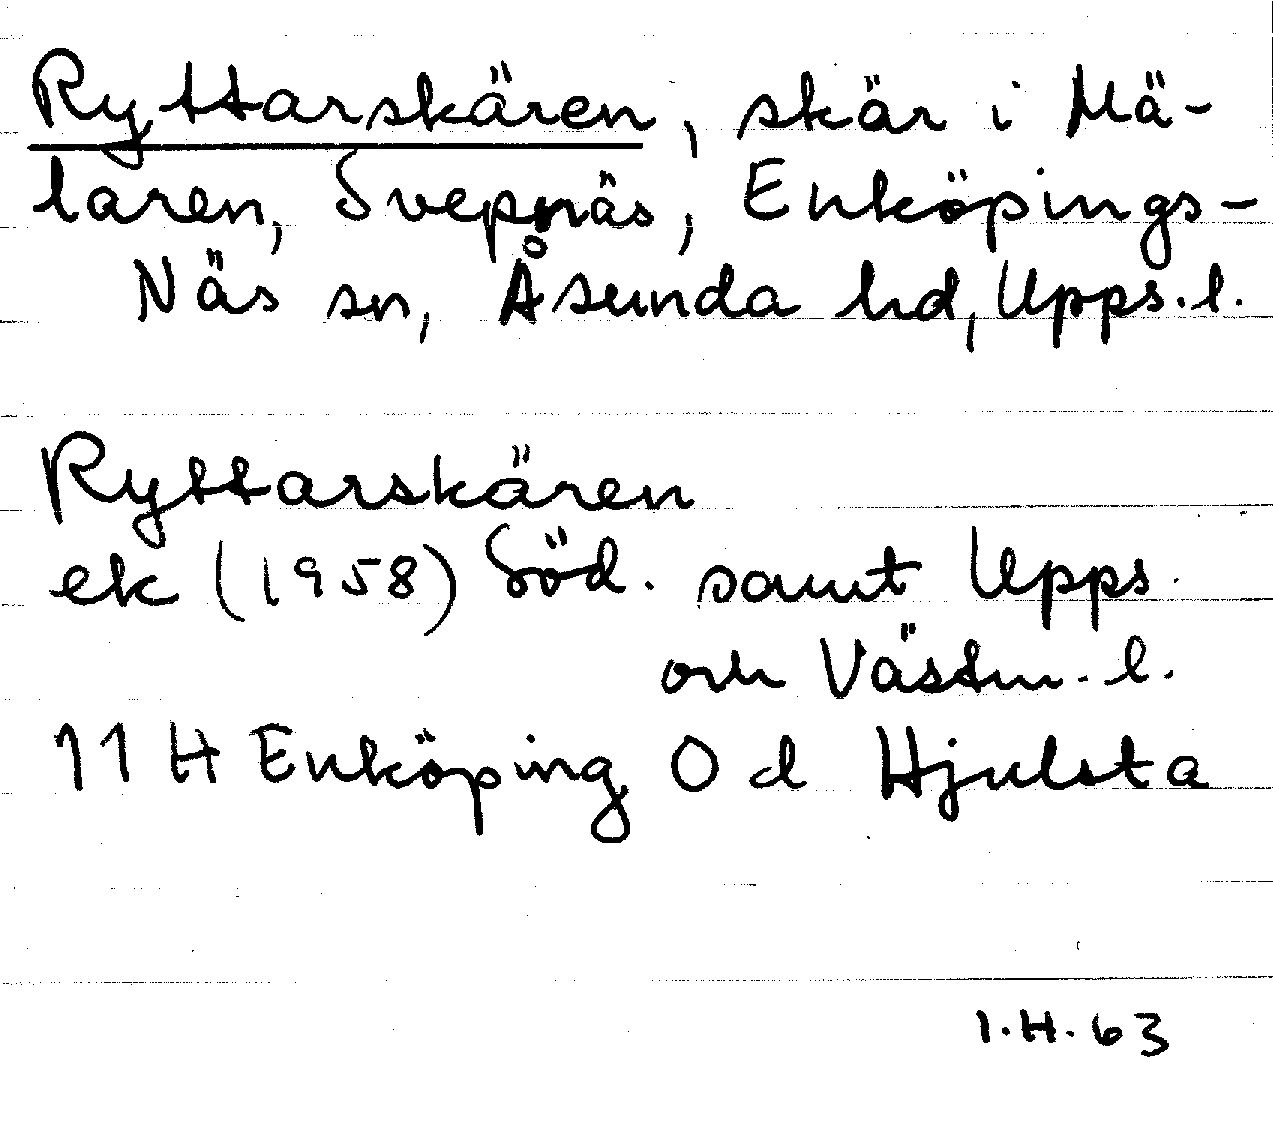 Ryttarskären, skär i Mä-
laren, Svepnäs, Enköpings-
Näs sn, Åsunda hd, Upps. l.
Ryttarskären
ek (1958) Söd. samt Upps.
och Västm. l.
11 H Enköping O d Hjulsta
I. H. 63